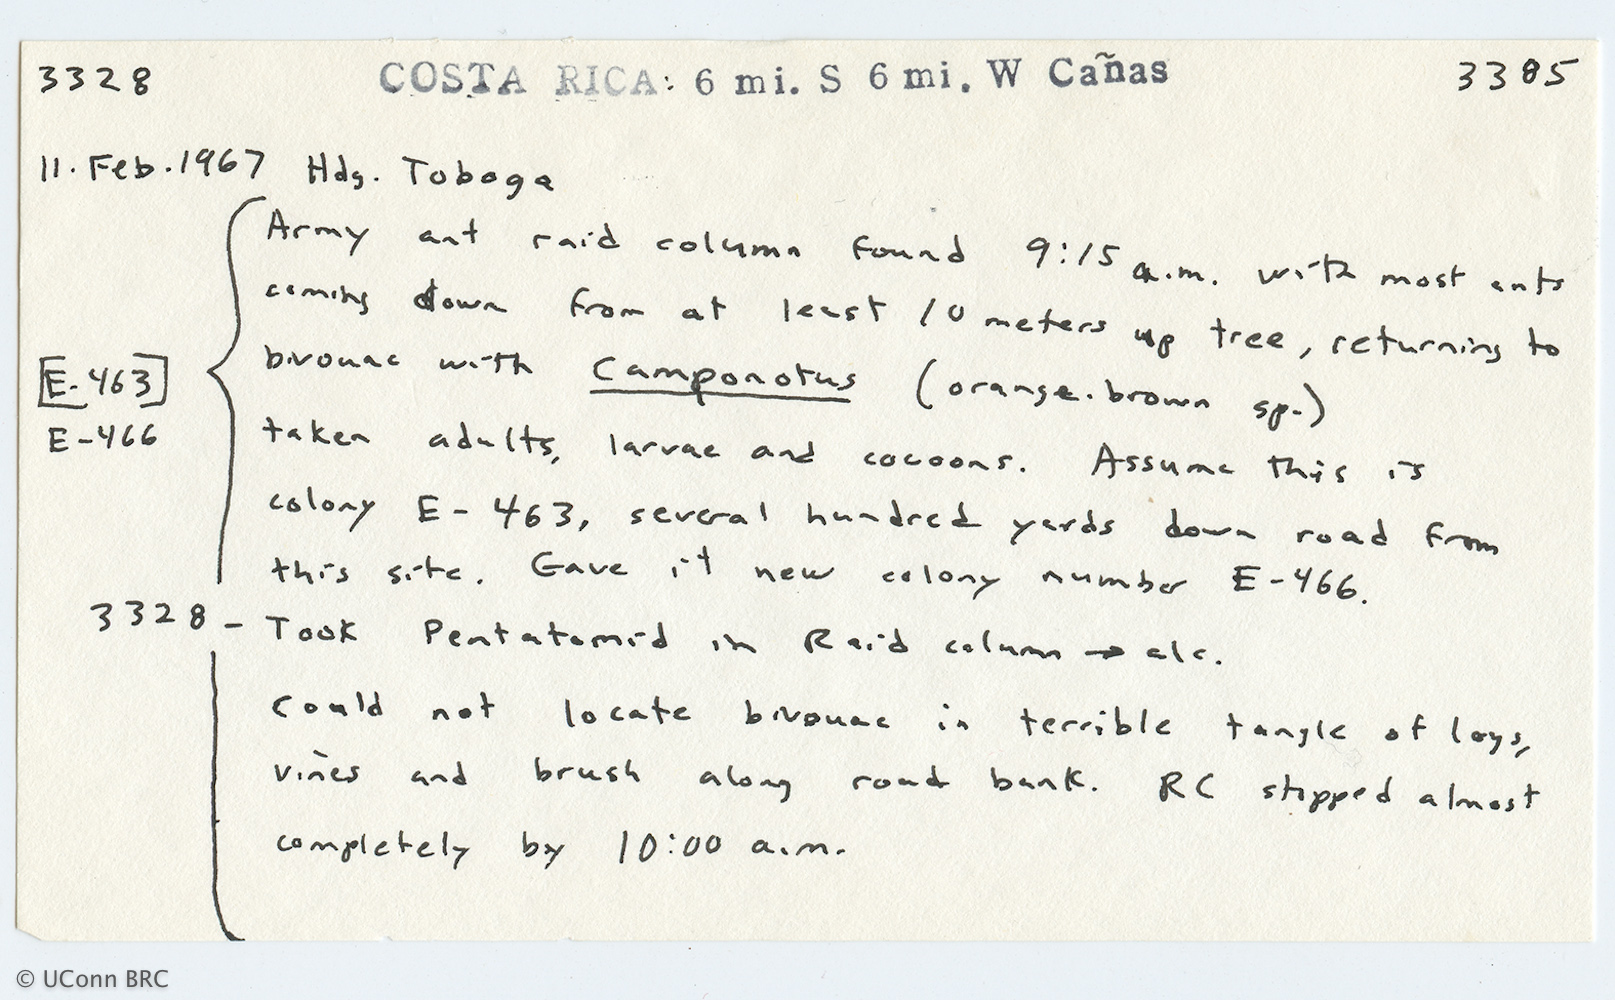 3328 COSTA RICA: 6 mi. S 6 mi. W Cañas 3385
11. Feb. 1967 Hdg. Toboga
Army ant raid column found 9:15 a.m. with most ants
coming down from at least 10 meters up tree, returning to
bivouac with Camponotus (orange-brown sp.)
[E-463]
E-466
taken adults, larvae and cocoons. Assume this is
colony E-463, several hundred yards down road from
this site. Gave it new colony number E-466.
3328 - Took Pentatomid in Raid column → alc.
Could not locate bivouac in terrible tangle of logs,
vines and brush along road bank. RC stopped almost
completely by 10:00 a.m.
© UConn BRC